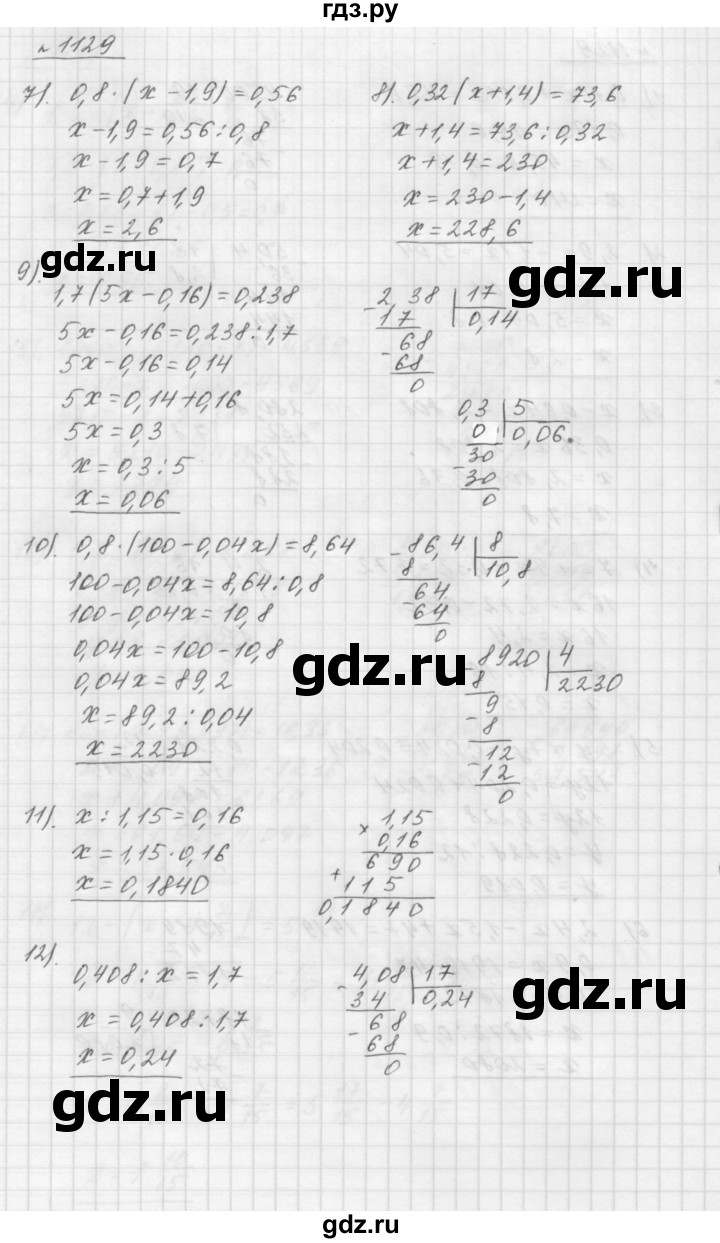 гдз.ру
№ 1129
7). 0,8·(x-1,9)=0,56
x-1,9=0,56:0,8
x-1,9=0,7
x=0,7+1,9
x=2,6
8). 0,32(x+1,4)=73,6
x+1,4=73,6:0,32
x+1,4=230
x=230-1,4
x=228,6
gdz.ru
gdz.ru
9).
1,7(5x-0,16)=0,238
5x-0,16=0,238:1,7
5x-0,16=0,14
5x=0,14+0,16
5x=0,3
x=0,3:5
x=0,06
- 2,38 | 17
17 | 0,14
- 68
68
0
0,3 | 5
0 | 0,06.
- 30
30
0
10). 0,8·(100-0,04x)=8,64
100-0,04x=8,64:0,8
100-0,04x=10,8
0,04x=100-10,8
0,04x=89,2
x=89,2:0,04
x=2230
- 86,4 | 8
8 | 10,8
- 64
64
0
gdz.ru
- 8920 | 4
8 | 2230
- 9
8
- 12
12
0
11). x:1,15=0,16
x=1,15·0,16
x=0,1840
× 1,15
0,16
+ 690
115
0,1840
12).
0,408:x=1,7
x=0,408:1,7
x=0,24
- 4,08 | 17
34 | 0,24
- 68
68
0
gdz.ru
gdz.ru
gdz.ru